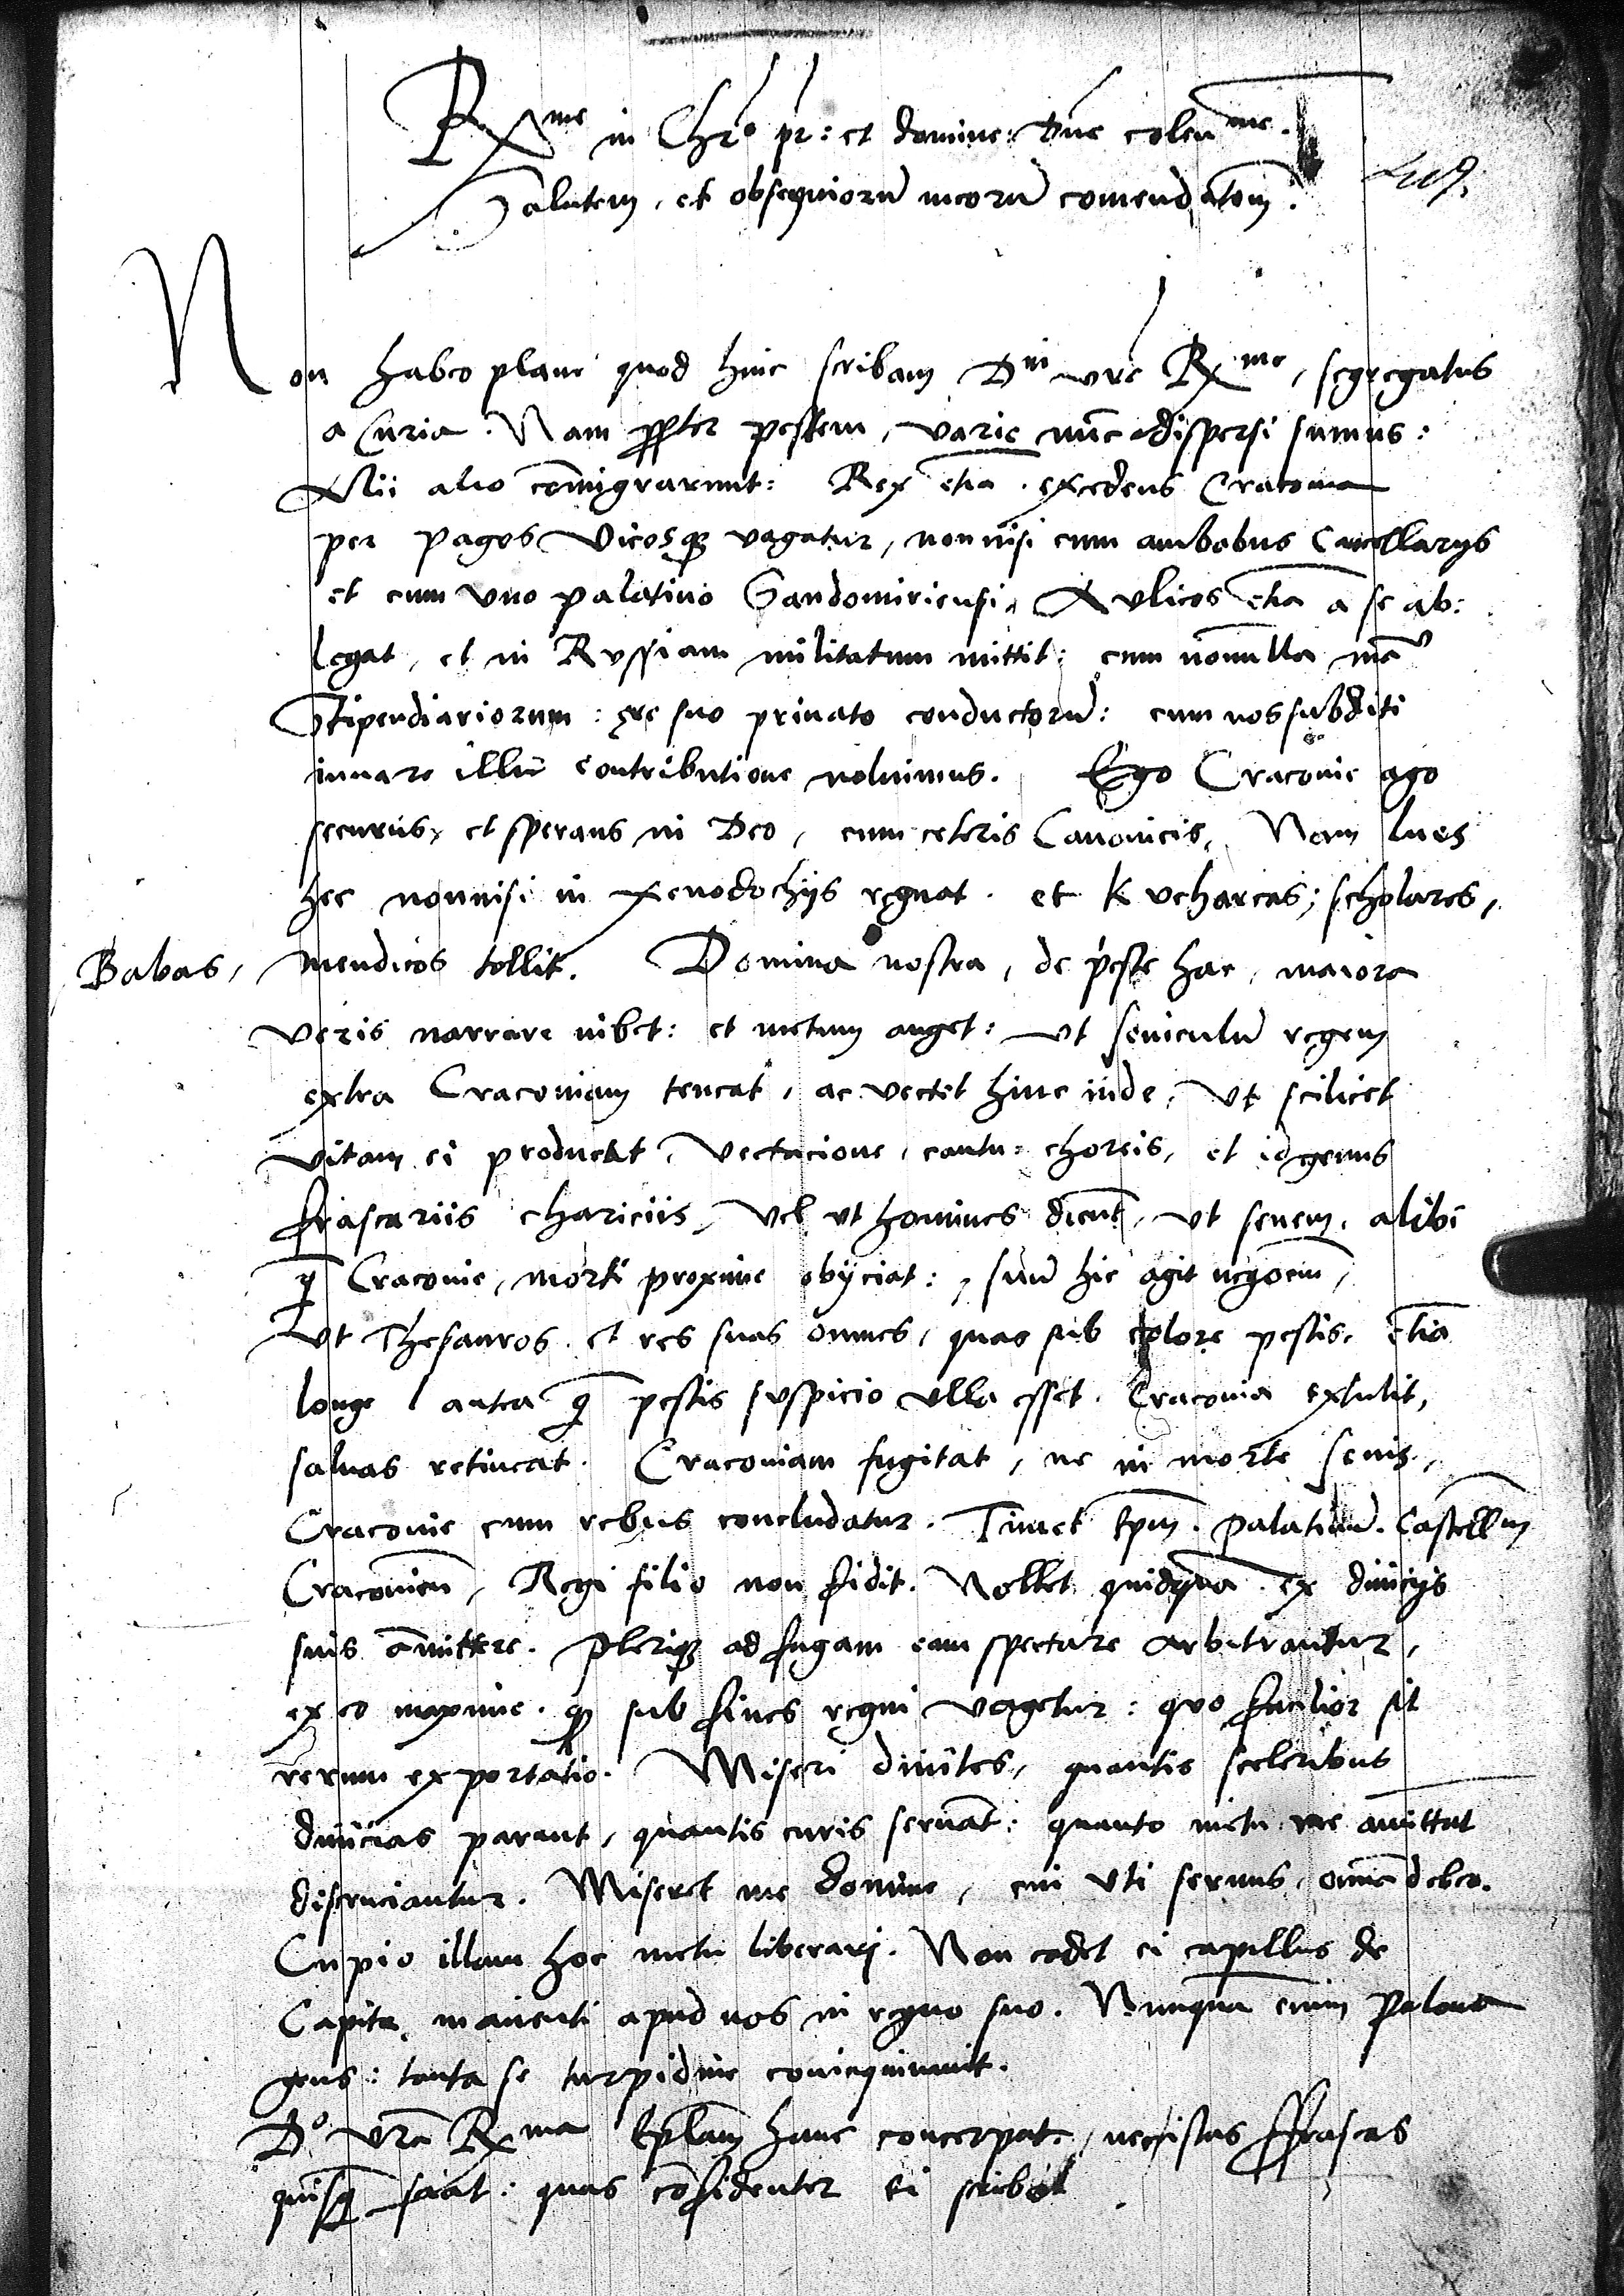 Rx^me in Chr^o pr: et domine: Dne colen^me.
Salutem, et obsequiorũ meorũ comendatom̃.
Non habeo plane quod hinc scribam D^ni vre Rx^me, segregatus
a Curia. Nam propter pestem, varie nũc dispersi sumus:
Alii alio com̃igrarunt: Rex etiã excedens Cracovia
per pagos vicosq3 vagatur, nonnisi cum ambobus Cancellarijs
et cum vno palatino Sandomiriensi, Avlicos etiã a se ab:
legat, et in Rvssiam militatum mittit: cum nõnulla manu
Stipendiariorum: ęre suo privato conductorũ: cum nos subditi
iuuare illũ contributione noluimus. Ego Cracovie ago
securus, et sperans in Deo, cum ceteris Canonicis, Nam lues
hec nonnisi in Xenodochijs regnat. et Kvcharcas; scholares,
Babas, mendicos tollit. Domina nostra, de peste hac, maiora
veris narrare iubet: et metum auget: vt seniculũ regem
extra Cracoviam teneat, ac vectet hinc inde, vt scilicet
vitam ei producat, vectacione, cantu: choreis, et id genus
frascariis chariciis, vel vt homines dicũt, vt senem, alibi
q̃ Cracovie, morti proxime obijciat:, suũ hic agit negoem̃,
Vt Thesauros et res suas omnes, quas sub colore pestis, etiã
longe antea q̃ pestis svspicio vlla esset. Cracovia extulit,
saluas retineat. Cracoviam fugitat, ne in morte senis,
Cracovie cum rebus concludatur. Timet Epm̃. Palatinũ. Castellm̃
Cracovieñ, Regi filio non fidit. Nollet quidq̃ua ex diuicijs
suis amittere. Pleriq3 ad fugam eam spectare arbitrantur,
ex eo maxime. q3 sub fines regni vagetur: quo facilior sit
rerum exportatio. Miseri diuites, quantis sceleribus
diuicias parant, quantis curis seruãt: quanto metu ne amittat
discruciantur. Miseret me domine, cui vti seruus, omnẽ debeo.
Cupio illam hoc metu liberarj. Non cadet ei capillus de
Capite, manenti apud nos in regno suo. Nunquã enim Polona
gens: tanta se turpidine coninquinauit.
D^o vrã Rx^ma Eplam̃ hanc concerpat, nec istas ffrascas
quisq̃ sciat: quas cõfidenter ei scribo